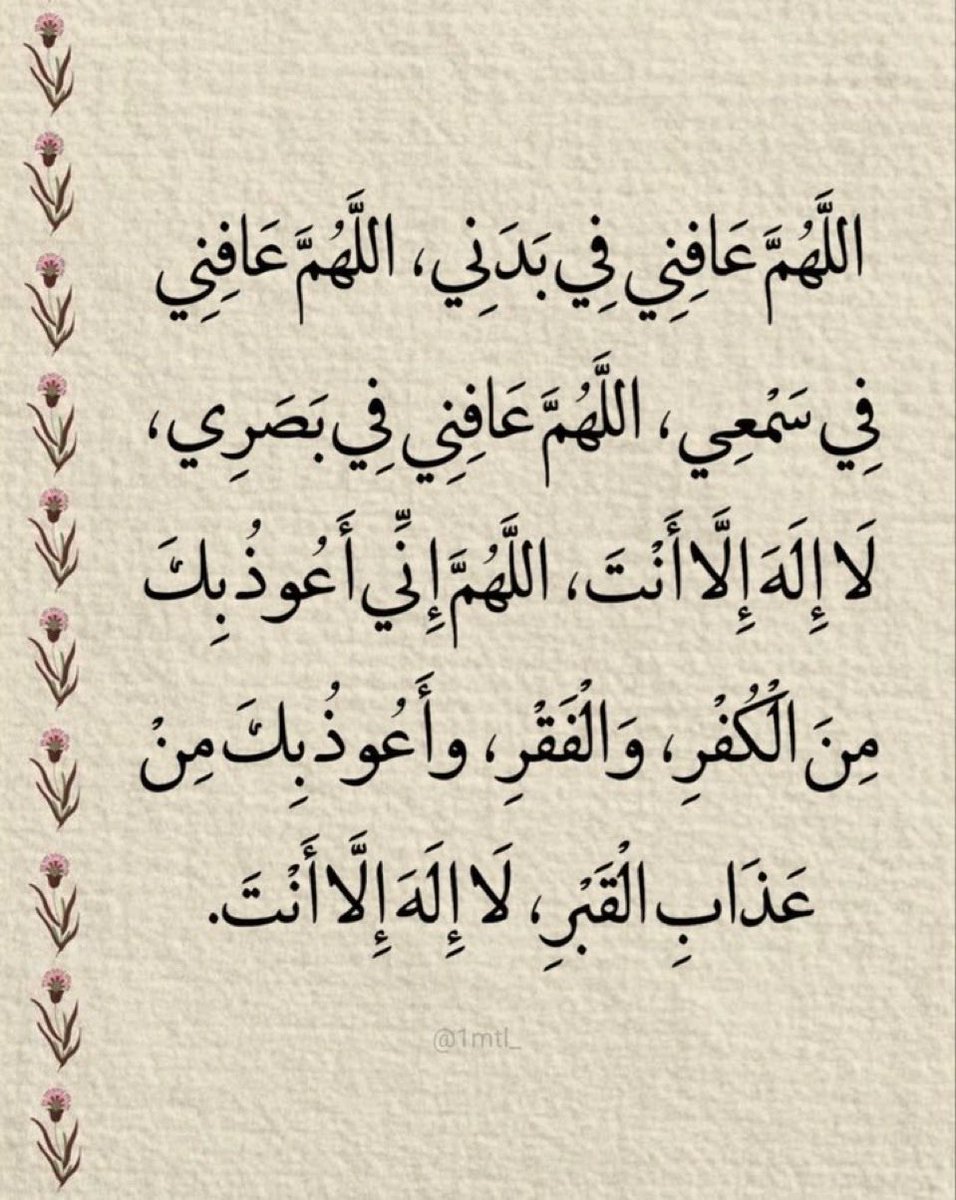 اللَّهُمَّ عَافِنِي فِي بَدَنِي، اللَّهُمَّ عَافِنِي
فِي سَمْعِي، اللَّهُمَّ عَافِنِي فِي بَصَرِي،
لَا إِلَهَ إِلَّا أَنْتَ، اللَّهُمَّ إِنِّي أَعُوذُ بِكَ
مِنَ الْكُفْرِ، وَالْفَقْرِ، وأَعُوذُ بِكَ مِنْ
عَذَابِ الْقَبْرِ، لَا إِلَهَ إِلَّا أَنْتَ.
@1mtl_